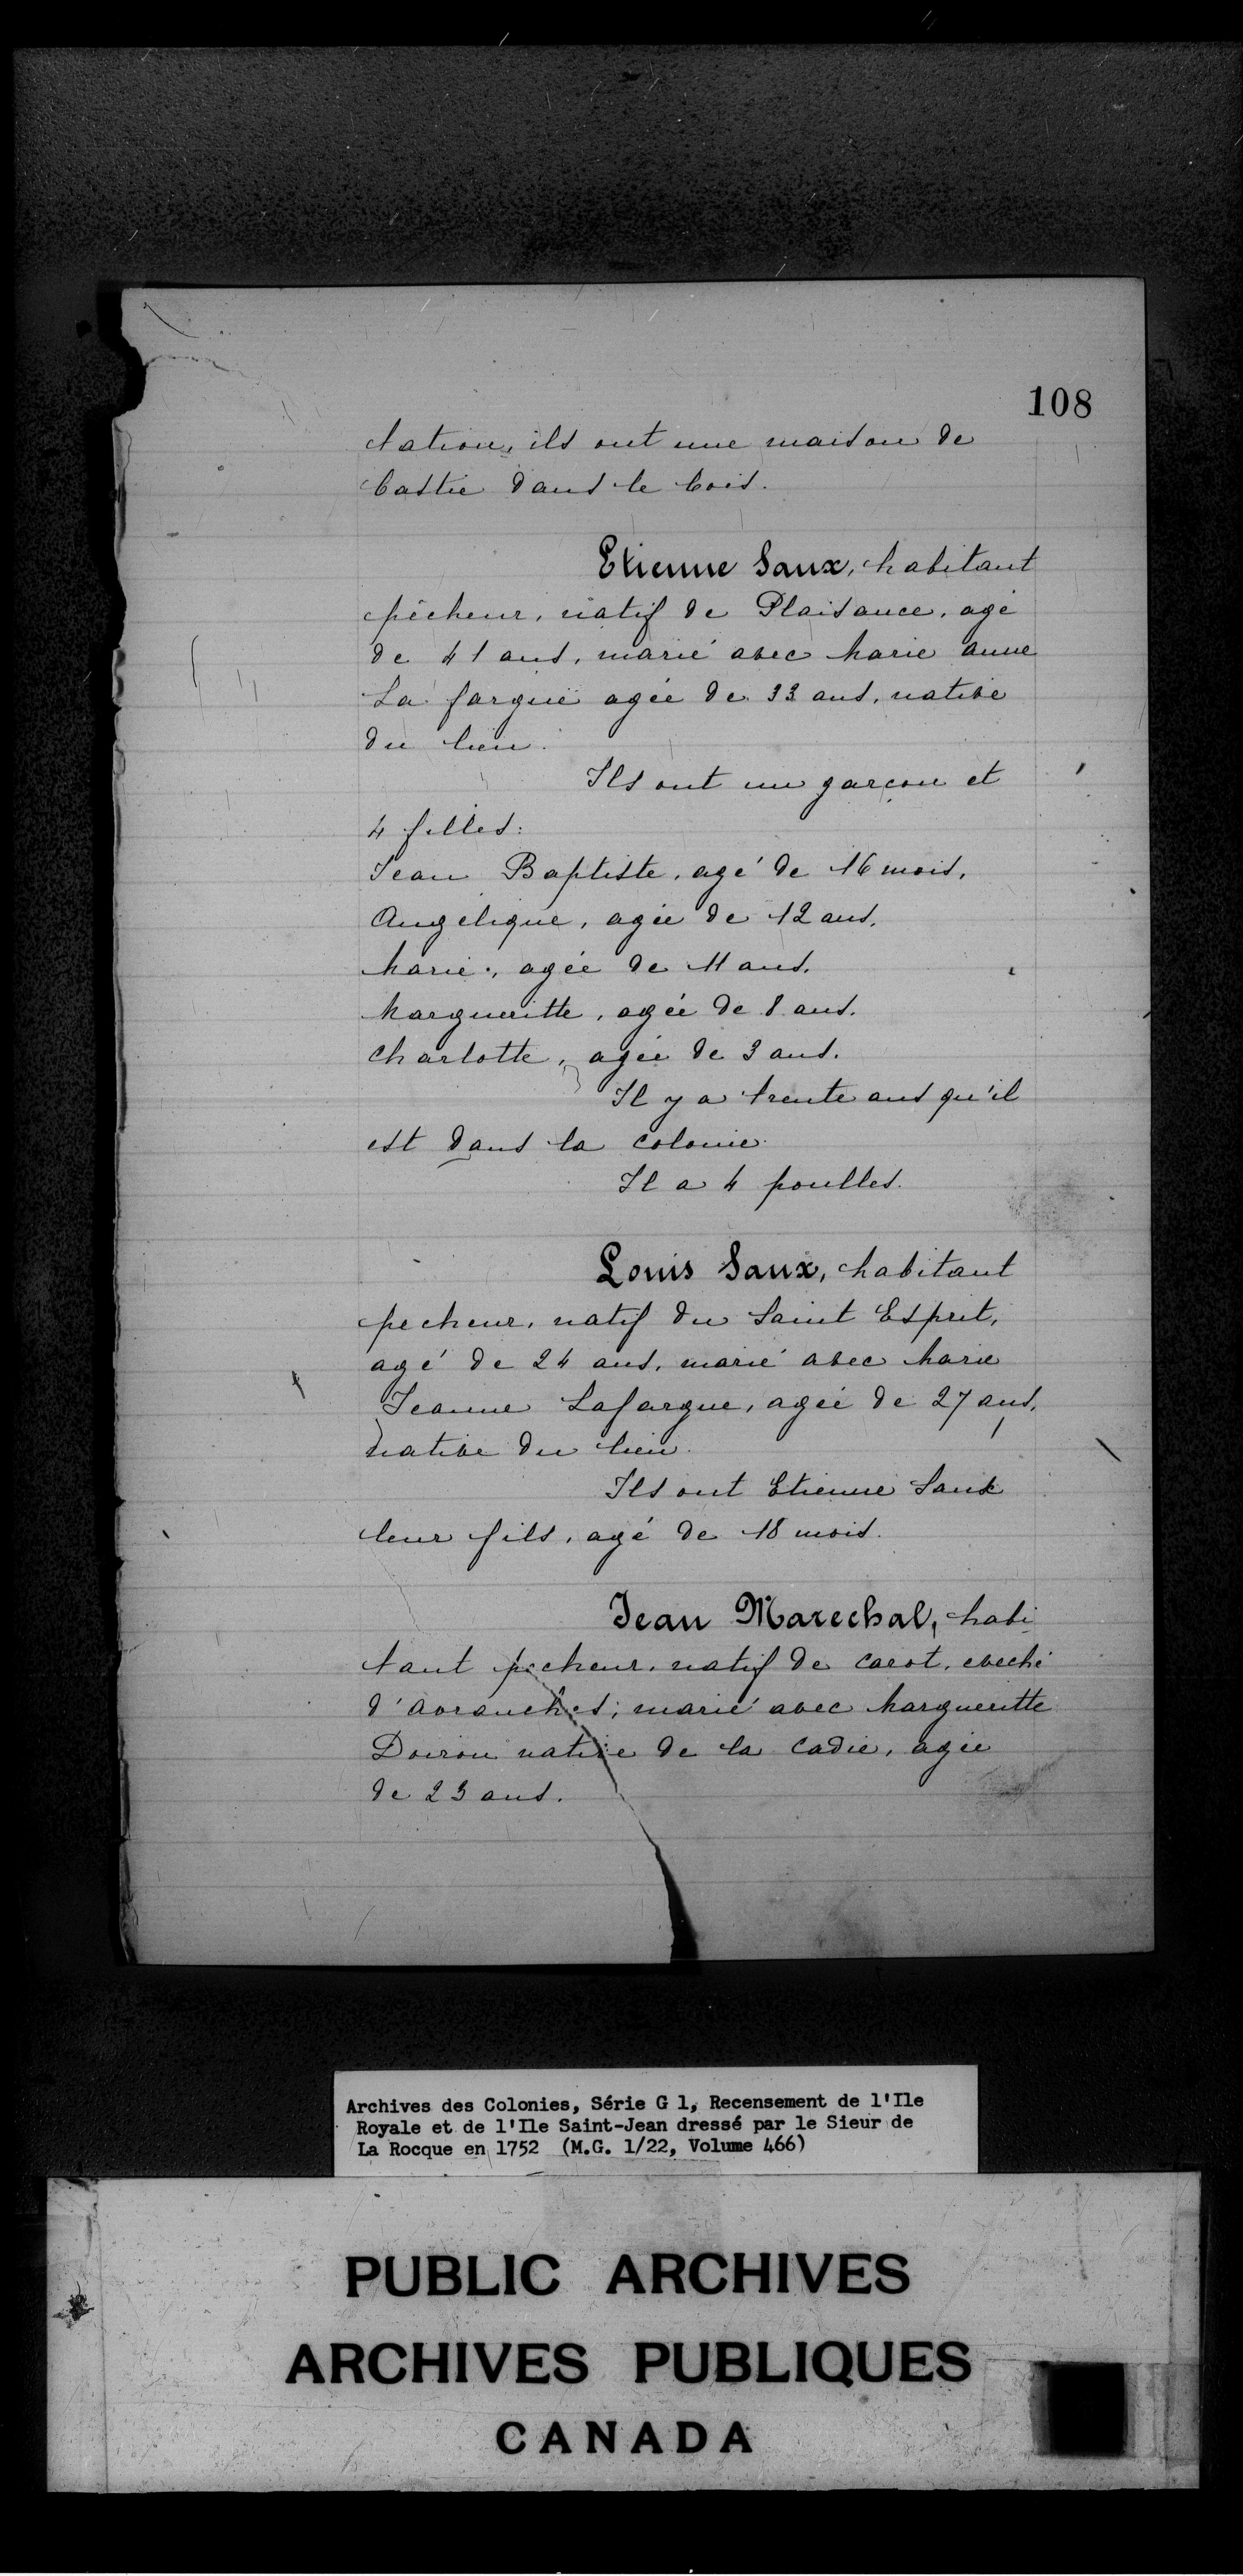 108
tation, ils ont une maison de
bastie dans le bois.
Etienne Saux, habitant
pêcheur, natif de Plaisance, agé
de 41 ans, marié avec Marie anne
La farguë agée de 33 ans, native
du lieu.
Ils ont un garçon et
4 filles:
Jean Baptiste, agé de 16 mois,
Angelique, agée de 12 ans,
Marie, agée de 11 ans,
Margueritte, agée de 8 ans.
Charlotte, agée de 3 ans.
Il y a trente ans qu'il
est dans la colonie.
Il a 4 poulles.
Louis Saux, habitant
pecheur, natif du Saint Esprit,
agé de 24 ans, marié avec Marie
Jeanne Lafargue, agée de 27 ans,
native du lieu.
Ils ont Etienne Saux
leur fils, agé de 18 mois.
Jean Marechal, habi
tant pecheur, natif de Carot, eveché
d'Avranches; marié avec Margueritte
Doiron native de la Cadie, agée
de 23 ans.
Archives des Colonies, Série G 1, Recensement de l'Ile
Royale et de l'Ile Saint-Jean dressé par le Sieur de
La Rocque en 1752 (M.G. 1/22, Volume 466)
PUBLIC ARCHIVES
ARCHIVES PUBLIQUES
CANADA